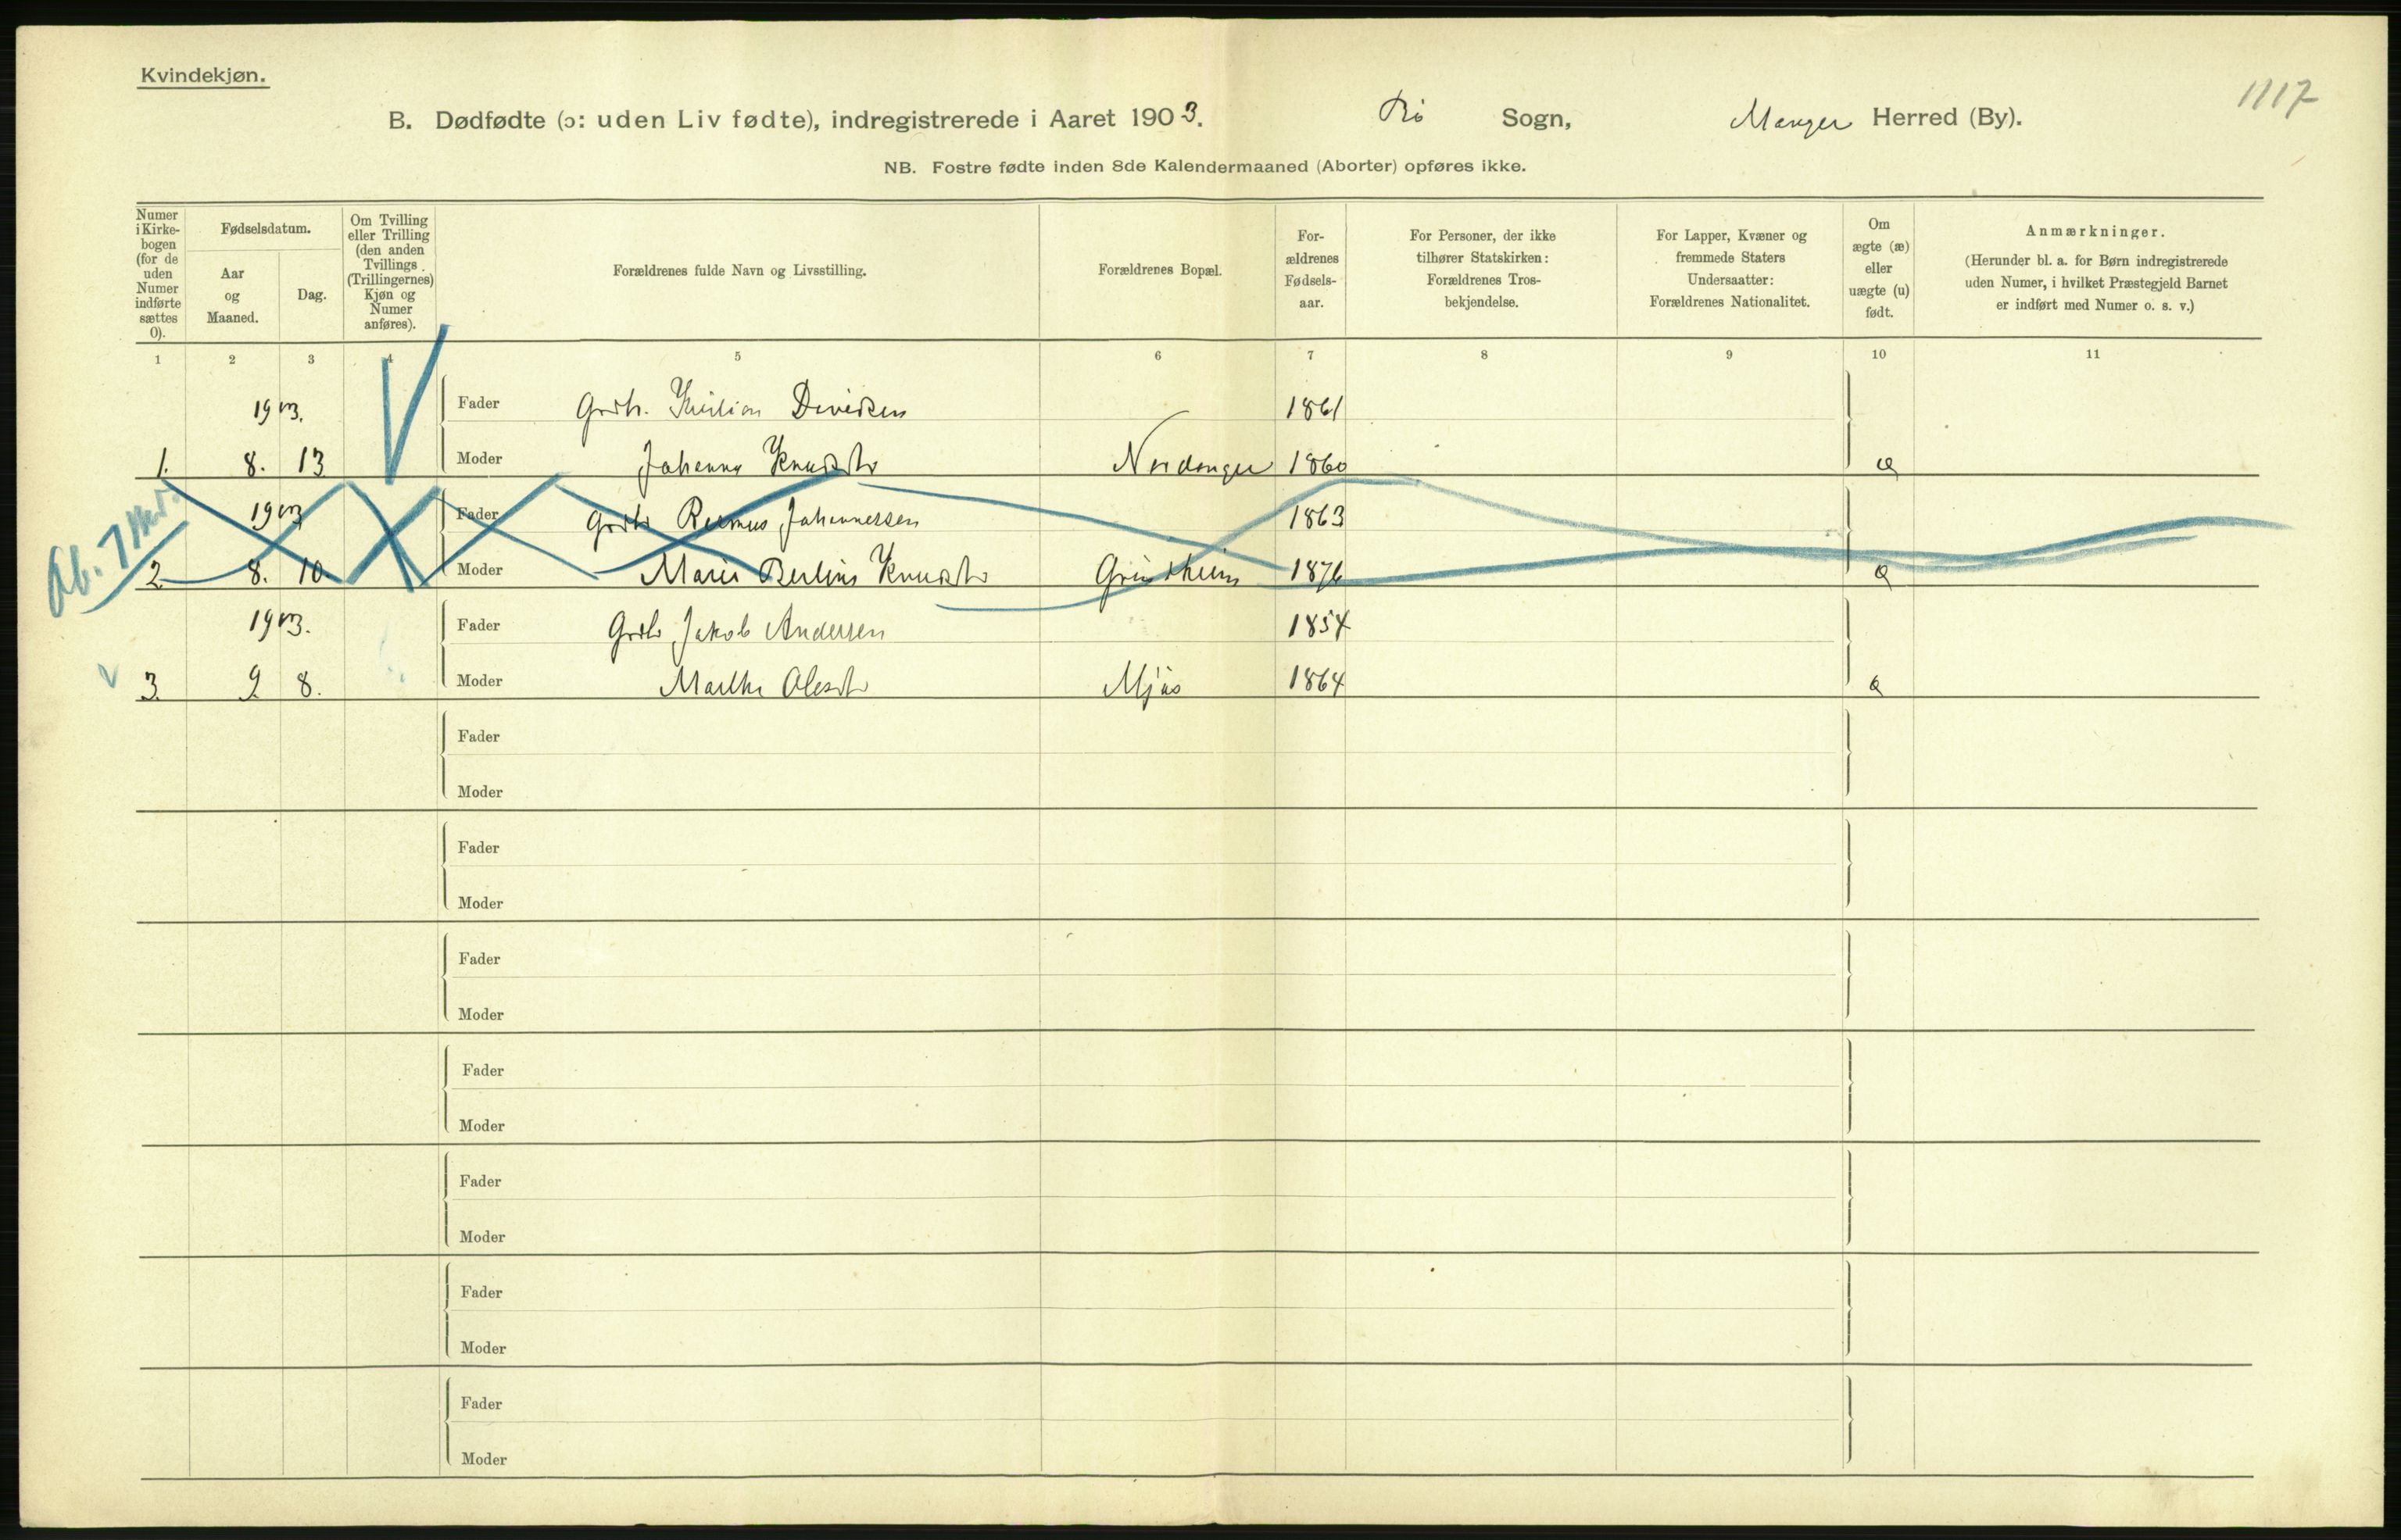 Kvindekjøn.
1117
B. Dødfødte (ɔ: uden Liv fødte), indregistrerede i Aaret 1903. Bø Sogn, Manger Herred (By).
NB. Fostre fødte inden 8de Kalendermaaned (Aborter) opføres ikke.
Numer i Kirkebogen (for de uden Numer indførte sættes 0).
Fødselsdatum.
Aar og Maaned.
Dag.
Om Tvilling eller Trilling (den anden Tvillings (Trillingernes) Kjøn og Numer anføres).
Forældrenes fulde Navn og Livsstilling.
Forældrenes Bopæl.
For-ældrenes Fødsels-aar.
For Personer, der ikke tilhører Statskirken: Forældrenes Tros-bekjendelse.
For Lapper, Kvæner og fremmede Staters Undersaatter: Forældrenes Nationalitet.
Om ægte (æ) eller uægte (u) født.
Anmærkninger.
(Herunder bl. a. for Børn indregistrerede uden Numer, i hvilket Præstegjeld Barnet er indført med Numer o. s. v.)
1 2 3 4 5 6 7 8 9 10 11
1903. Fader Grdbr. Davidsen 1861
1. 8. 13 Moder Johanna Knudsdtr Nordanger 1860 æ
Ab. 7
1903 Fader Grdbr Rasmus Johannessen 1863
2 8. 10. Moder Marie Berline Knudsdtr Grindheim 1876 æ
1903. Fader Grdbr Jakob Andersen 1854
3. 9. 8. Moder Marthe Olesdtr Mjøs 1864 æ
Fader
Moder
Fader
Moder
Fader
Moder
Fader
Moder
Fader
Moder
Fader
Moder
Fader
Moder